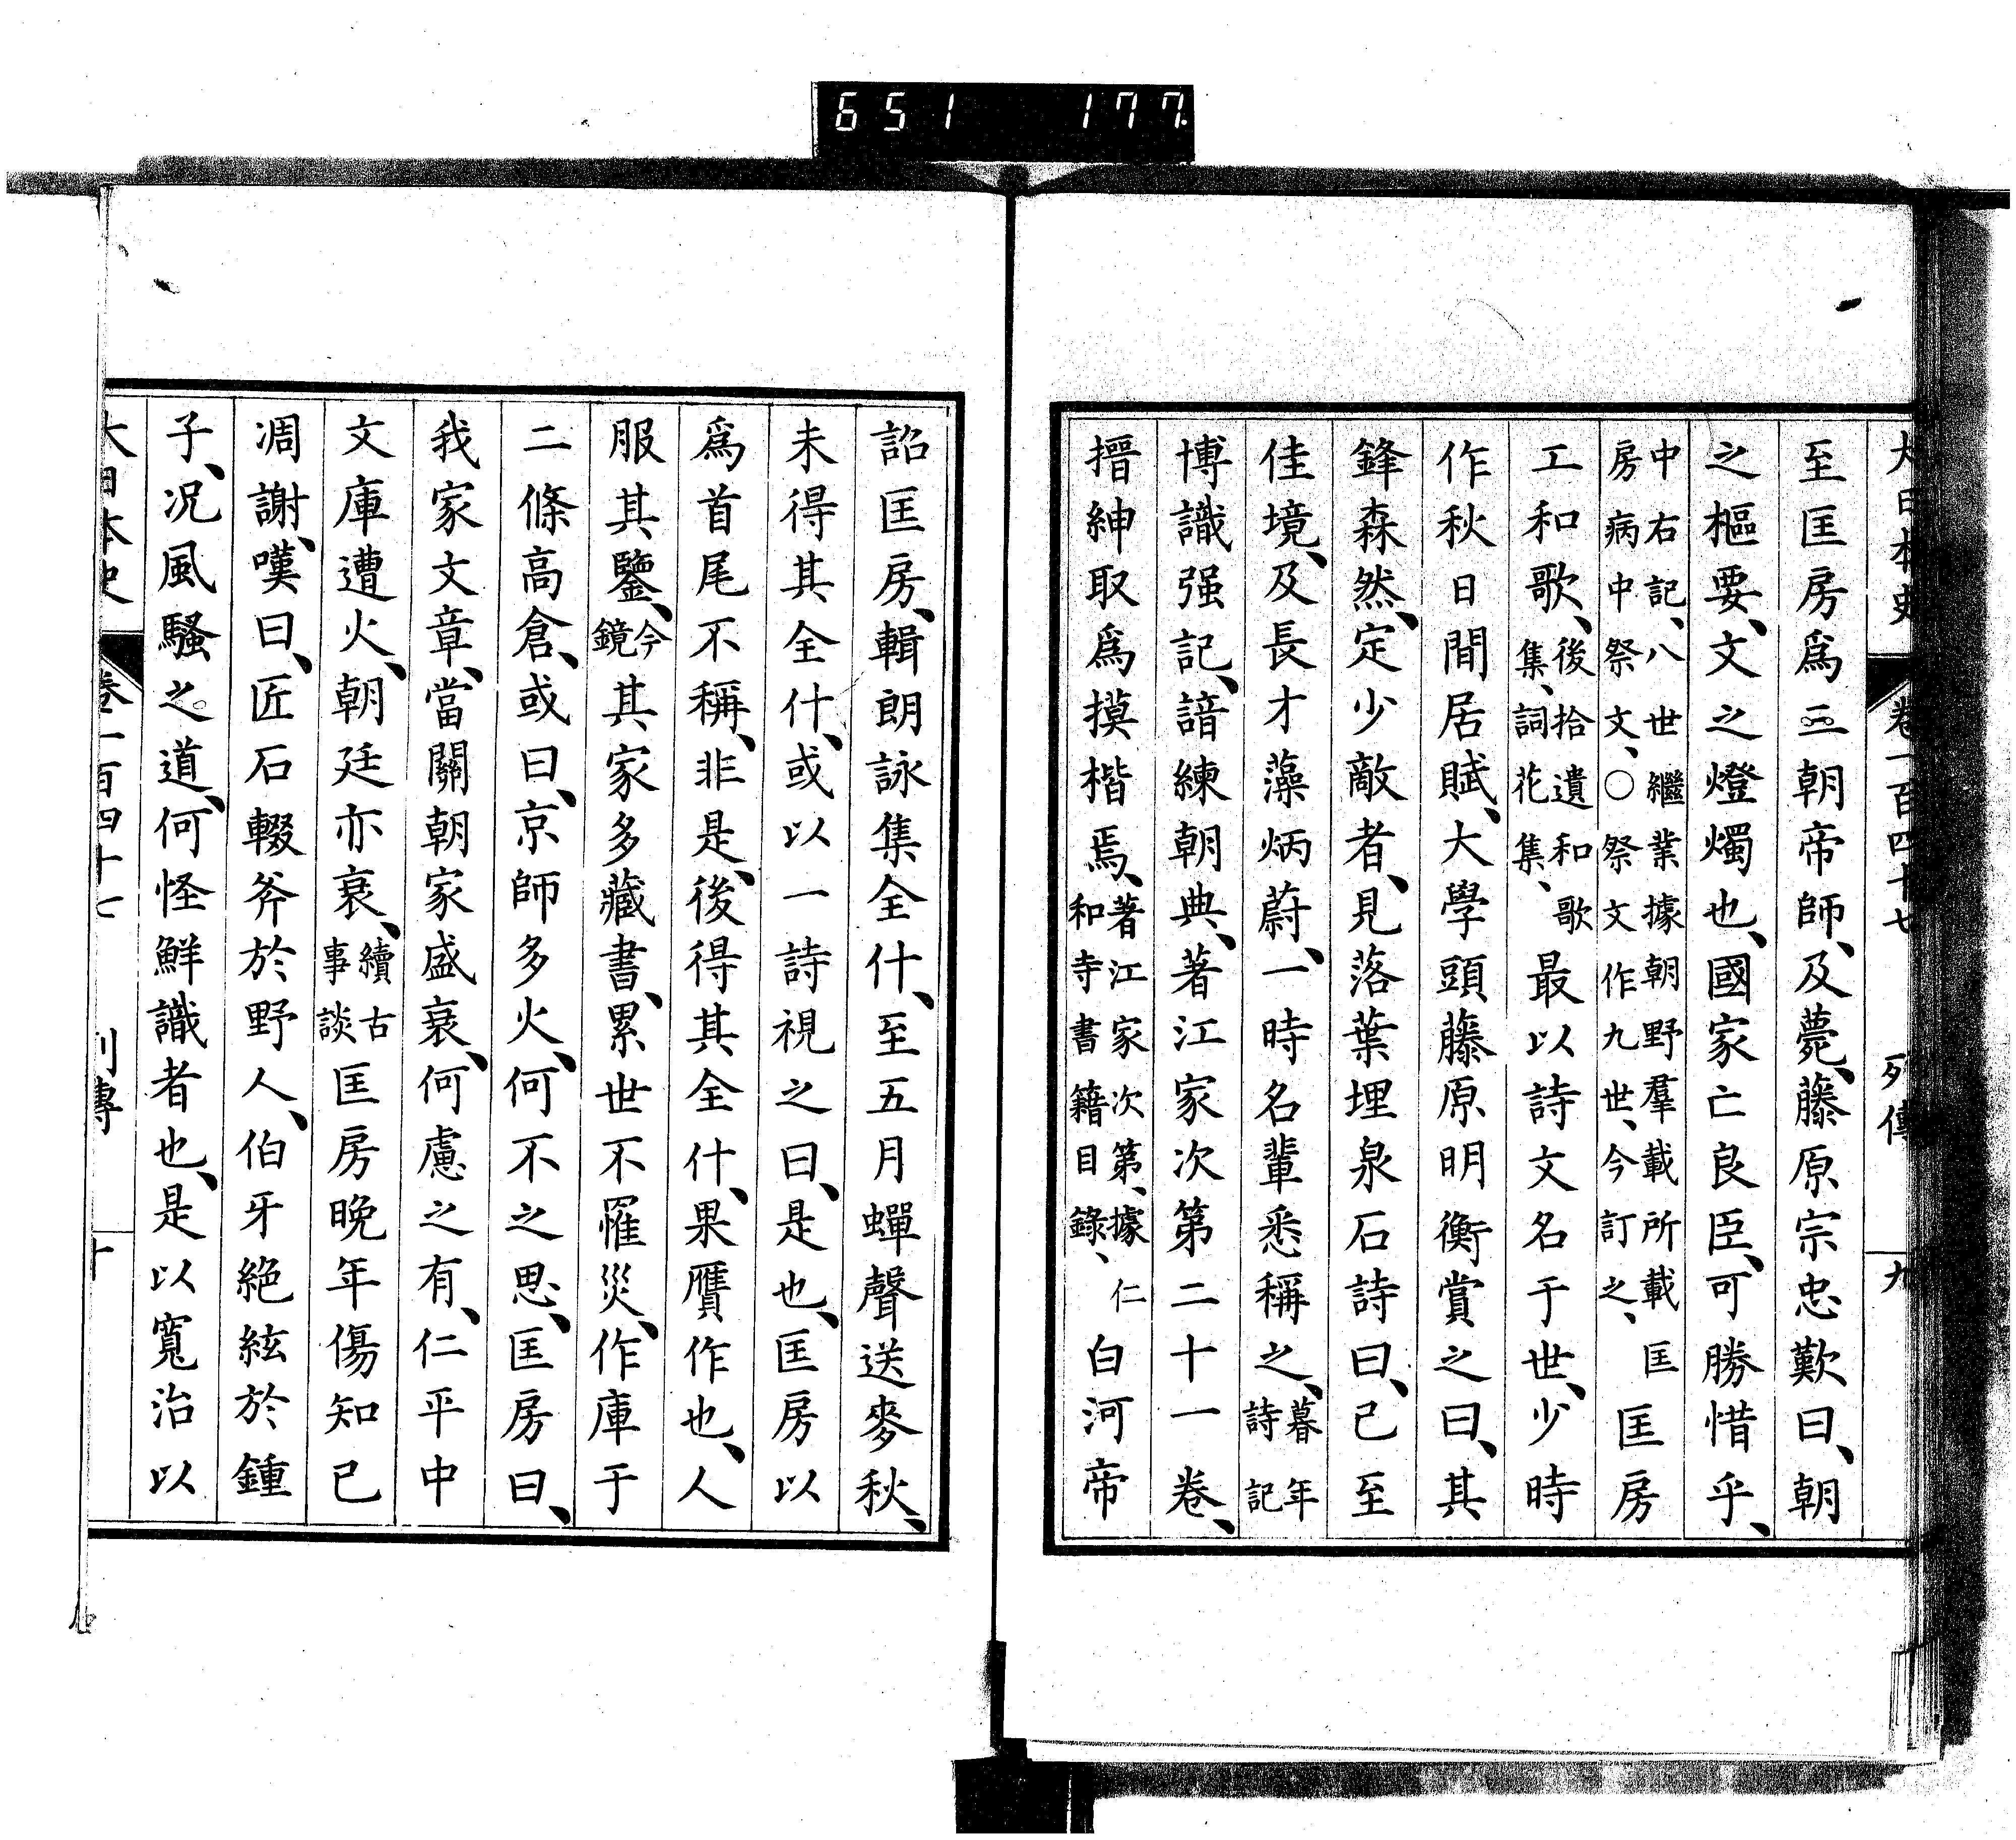 651 177
大日本史 卷一百四十七 列傳 九
至匡房爲三朝帝師、及薨、藤原宗忠歎曰、朝
之樞要、文之燈燭也、國家亡良臣、可勝惜乎、
中右記、八世繼業據朝野羣載所載匡
房病中祭文、○祭文作九世、今訂之、匡房
工和歌、後拾遺和歌
集、詞花集、最以詩文名于世、少時
作秋日閒居賦、大學頭藤原明衡賞之曰、其
鋒森然、定少敵者、見落葉埋泉石詩曰、已至
佳境、及長才藻炳蔚、一時名輩悉稱之、暮年
詩記
博識强記、諳練朝典、著江家次第二十一卷、
搢紳取爲摸楷焉、著江家次第、據仁
和寺書籍目錄、白河帝
詔匡房、輯朗詠集全什、至五月蟬聲送麥秋、
未得其全什、或以一詩視之曰、是也、匡房以
爲首尾不稱、非是、後得其全什、果贋作也、人
服其鑒、今
鏡其家多藏書、累世不罹災、作庫于
二條高倉、或曰、京師多火、何不之思、匡房曰、
我家文章、當關朝家盛衰、何慮之有、仁平中
文庫遭火、朝廷亦衰、續古
事談匡房晩年傷知已
凋謝、嘆曰、匠石輟斧於野人、伯牙絶絃於鍾
子、況風騷之道、何怪鮮識者也、是以寬治以
大日本史 卷一百四十七 列傳 十